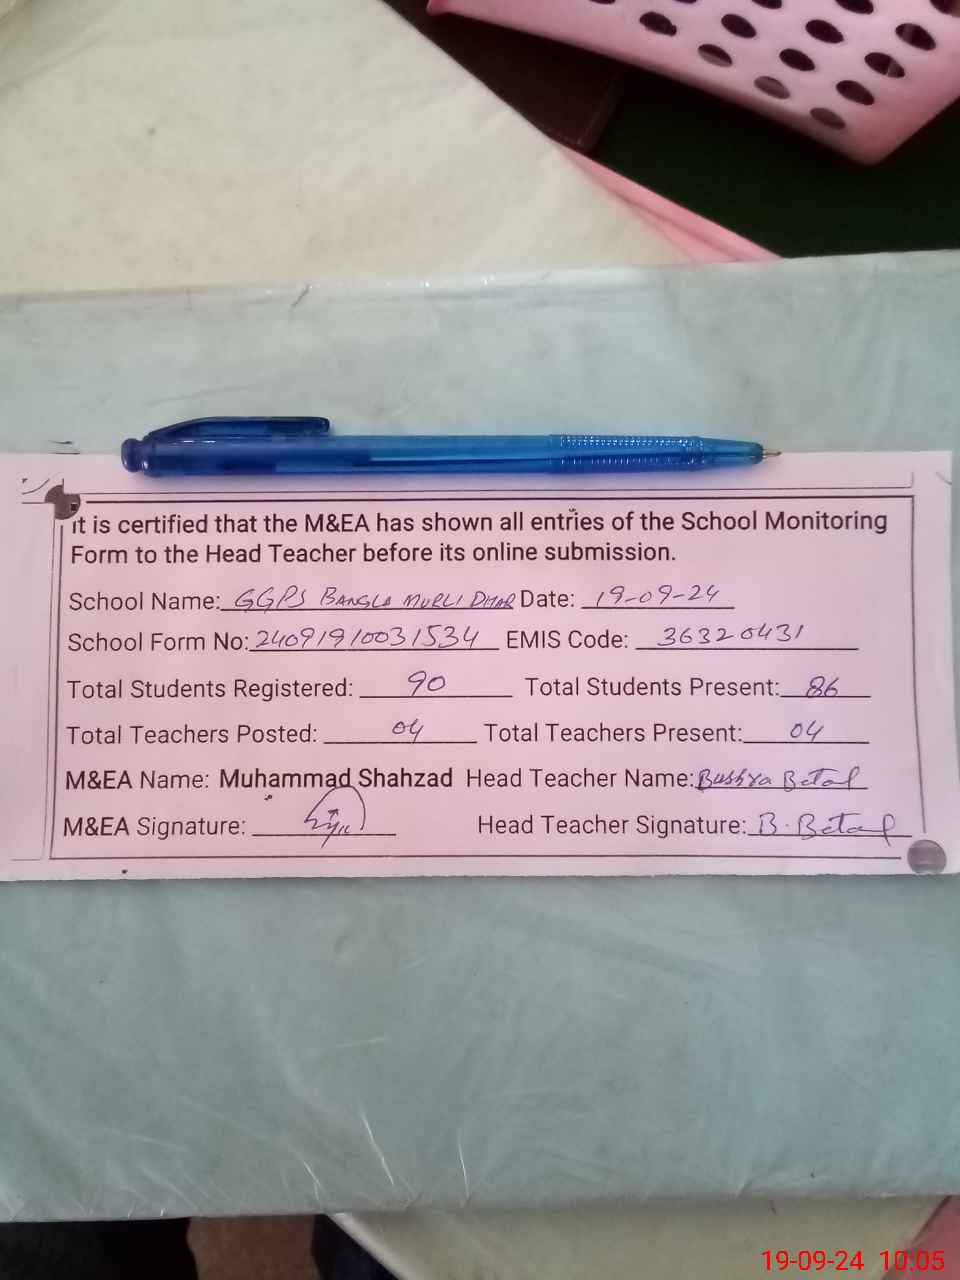 It is certified that the M&EA has shown all entries of the School Monitoring
Form to the Head Teacher before its online submission.
School Name: GGPS BANGLA MURLI DHAR Date: 19-09-24
School Form No: 24091910031534 EMIS Code: 36320431
Total Students Registered: 90 Total Students Present: 86
Total Teachers Posted: 04 Total Teachers Present: 04
M&EA Name: Muhammad Shahzad Head Teacher Name: Bushra Betal
M&EA Signature: Head Teacher Signature: B. Betal
19-09-24 10:05